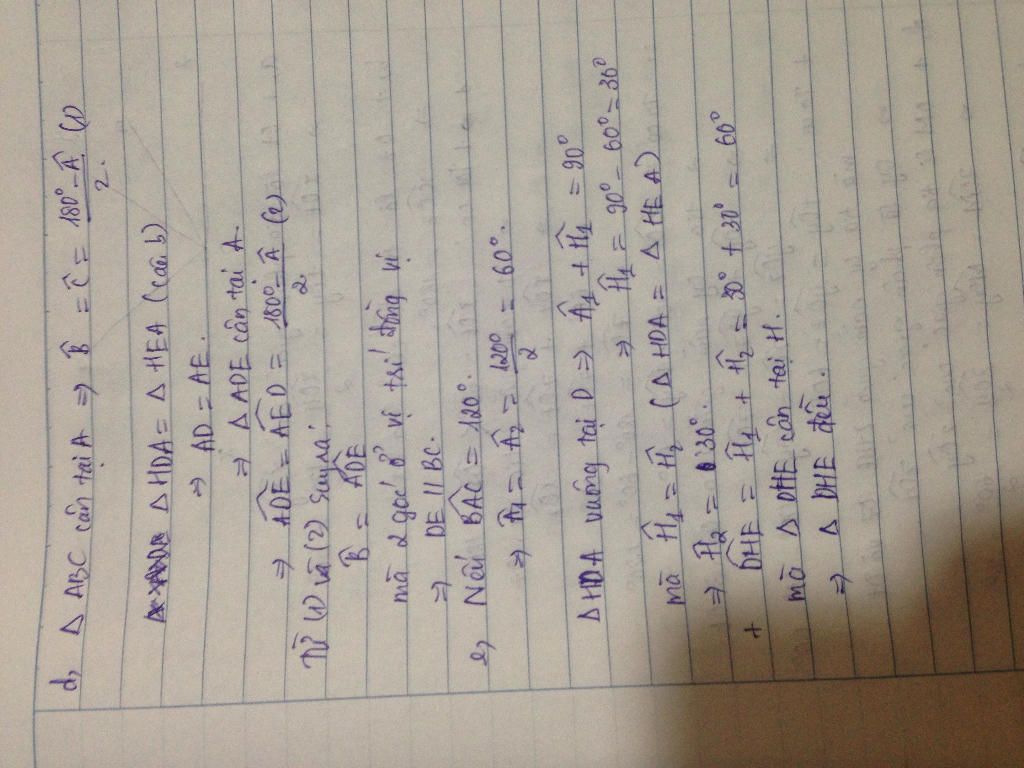 d, Δ ABC cân tại A ⇒ B̂ = Ĉ = (180° - Â)/2 (1)
Δ HDA = Δ HEA (câu b)
⇒ AD = AE.
⇒ Δ ADE cân tại A
⇒ ADÊ = AÊD = (180° - Â)/2 (2)
Từ (1) và (2) suy ra:
B̂ = ADÊ
mà 2 góc ở vị trí đồng vị
⇒ DE // BC.
e, Nếu BÂC = 120°.
⇒ Â₁ = Â₂ = 120°/2 = 60°.
Δ HDA vuông tại D ⇒ Â₁ + Ĥ₁ = 90°
⇒ Ĥ₁ = 90° - 60° = 30°
mà Ĥ₁ = Ĥ₂ (Δ HDA = Δ HEA)
⇒ Ĥ₂ = 30°.
+ DĤE = Ĥ₁ + Ĥ₂ = 30° + 30° = 60°
mà Δ DHE cân tại H.
⇒ Δ DHE đều.